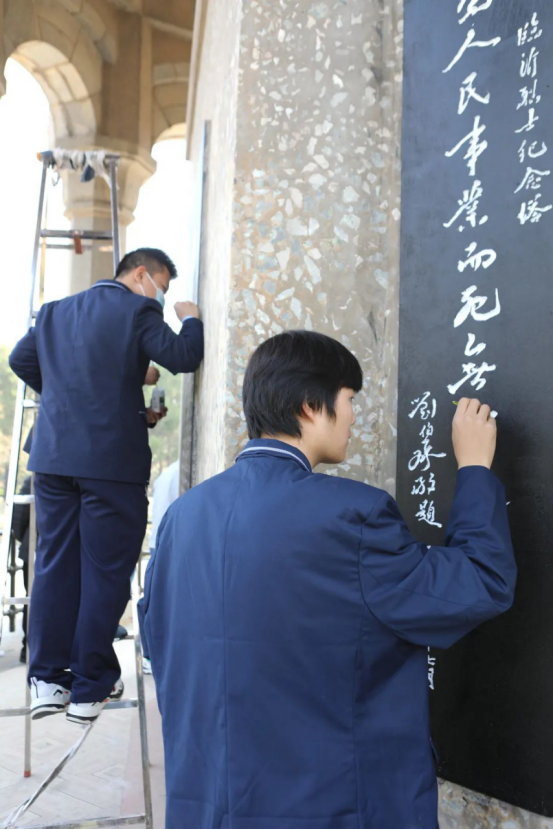 臨沂烈士纪念塔
人民事業而死無
劉伯承敬題